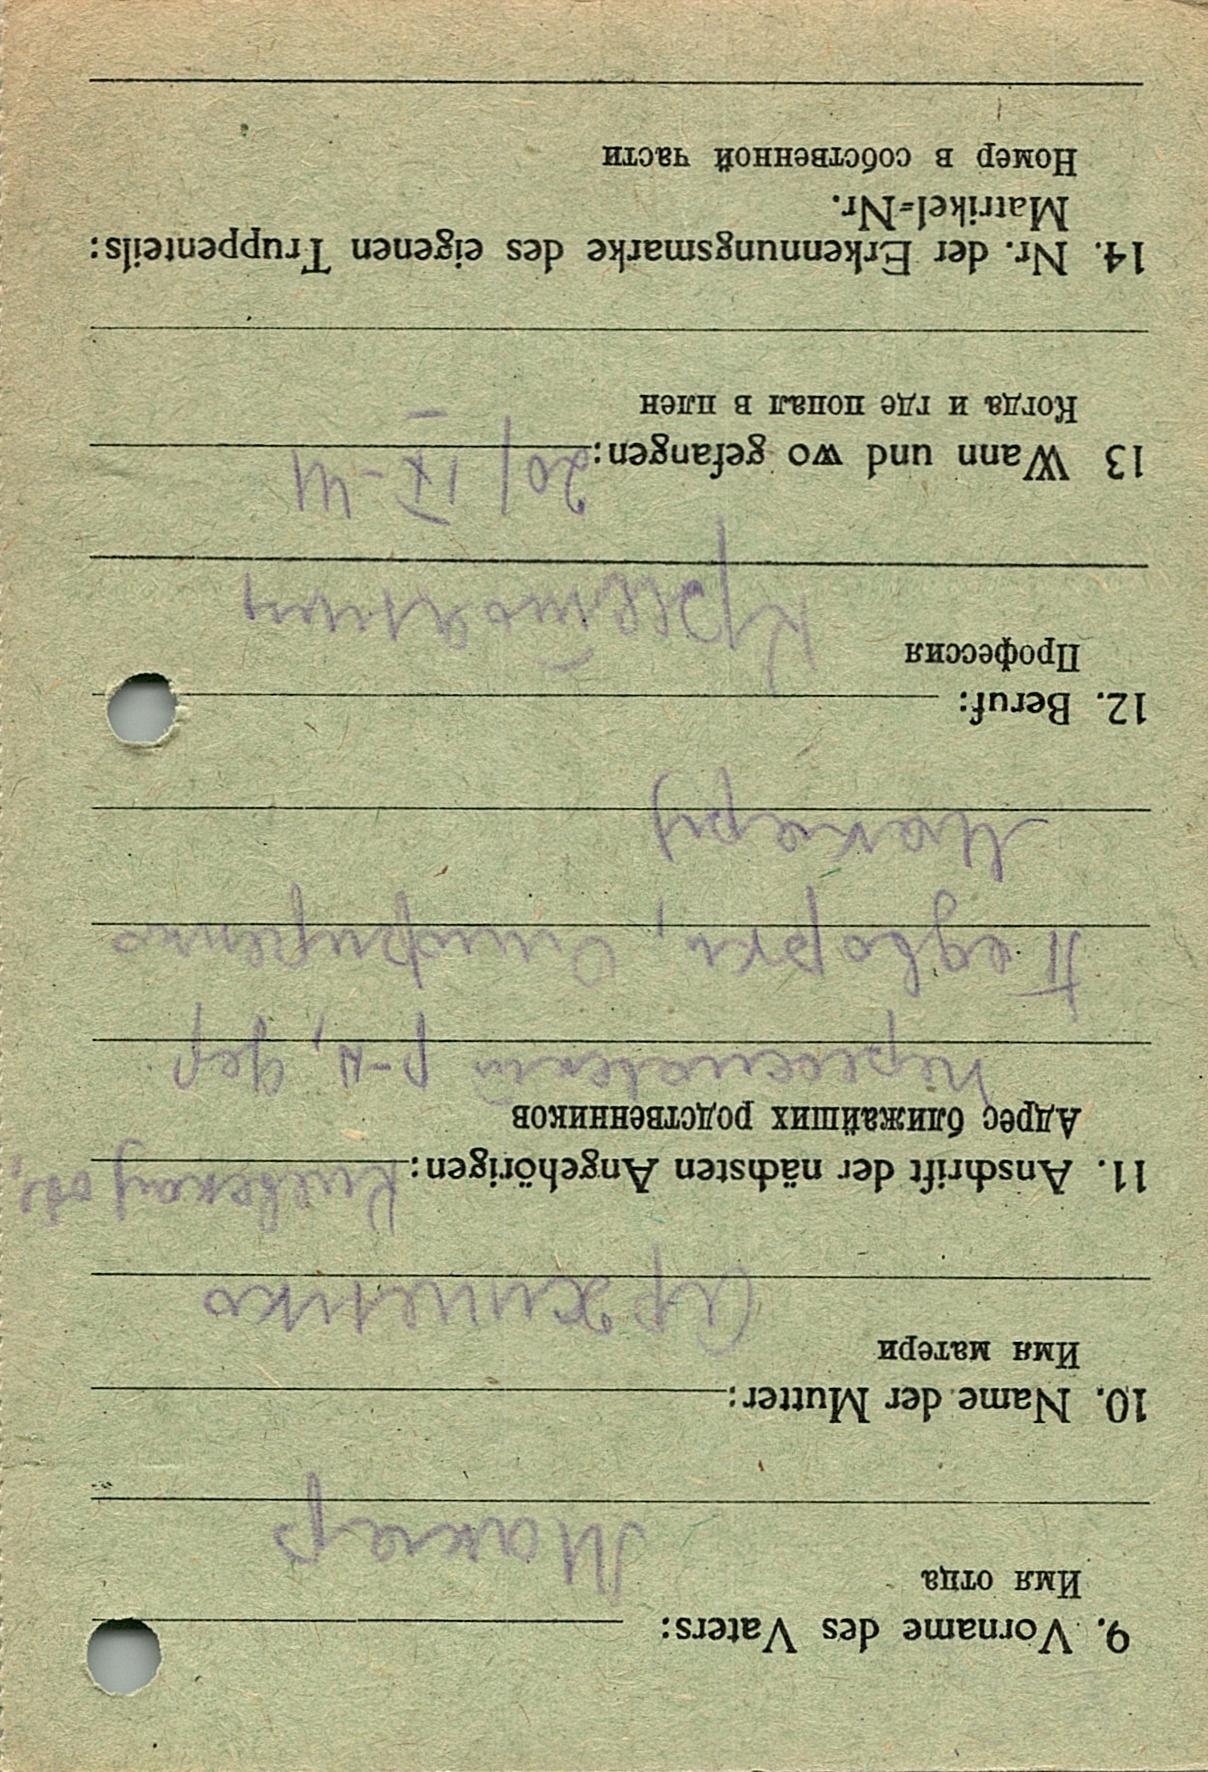 9. Vorname des Vaters:
Имя отца
Макар
10. Name der Mutter:
Имя матери
Архипенко
11. Anschrift der nächsten Angehörigen: Киевская обл,
Адрес ближайших родственников
р-н, дер.
Подворки,
Макару
12. Beruf:
Профессия
Крестьянин
13 Wann und wo gefangen: 20/IX-41
Когда и где попал в плен
14. Nr. der Erkennungsmarke des eigenen Truppenteils:
Matrikel-Nr.
Номер в собственной части